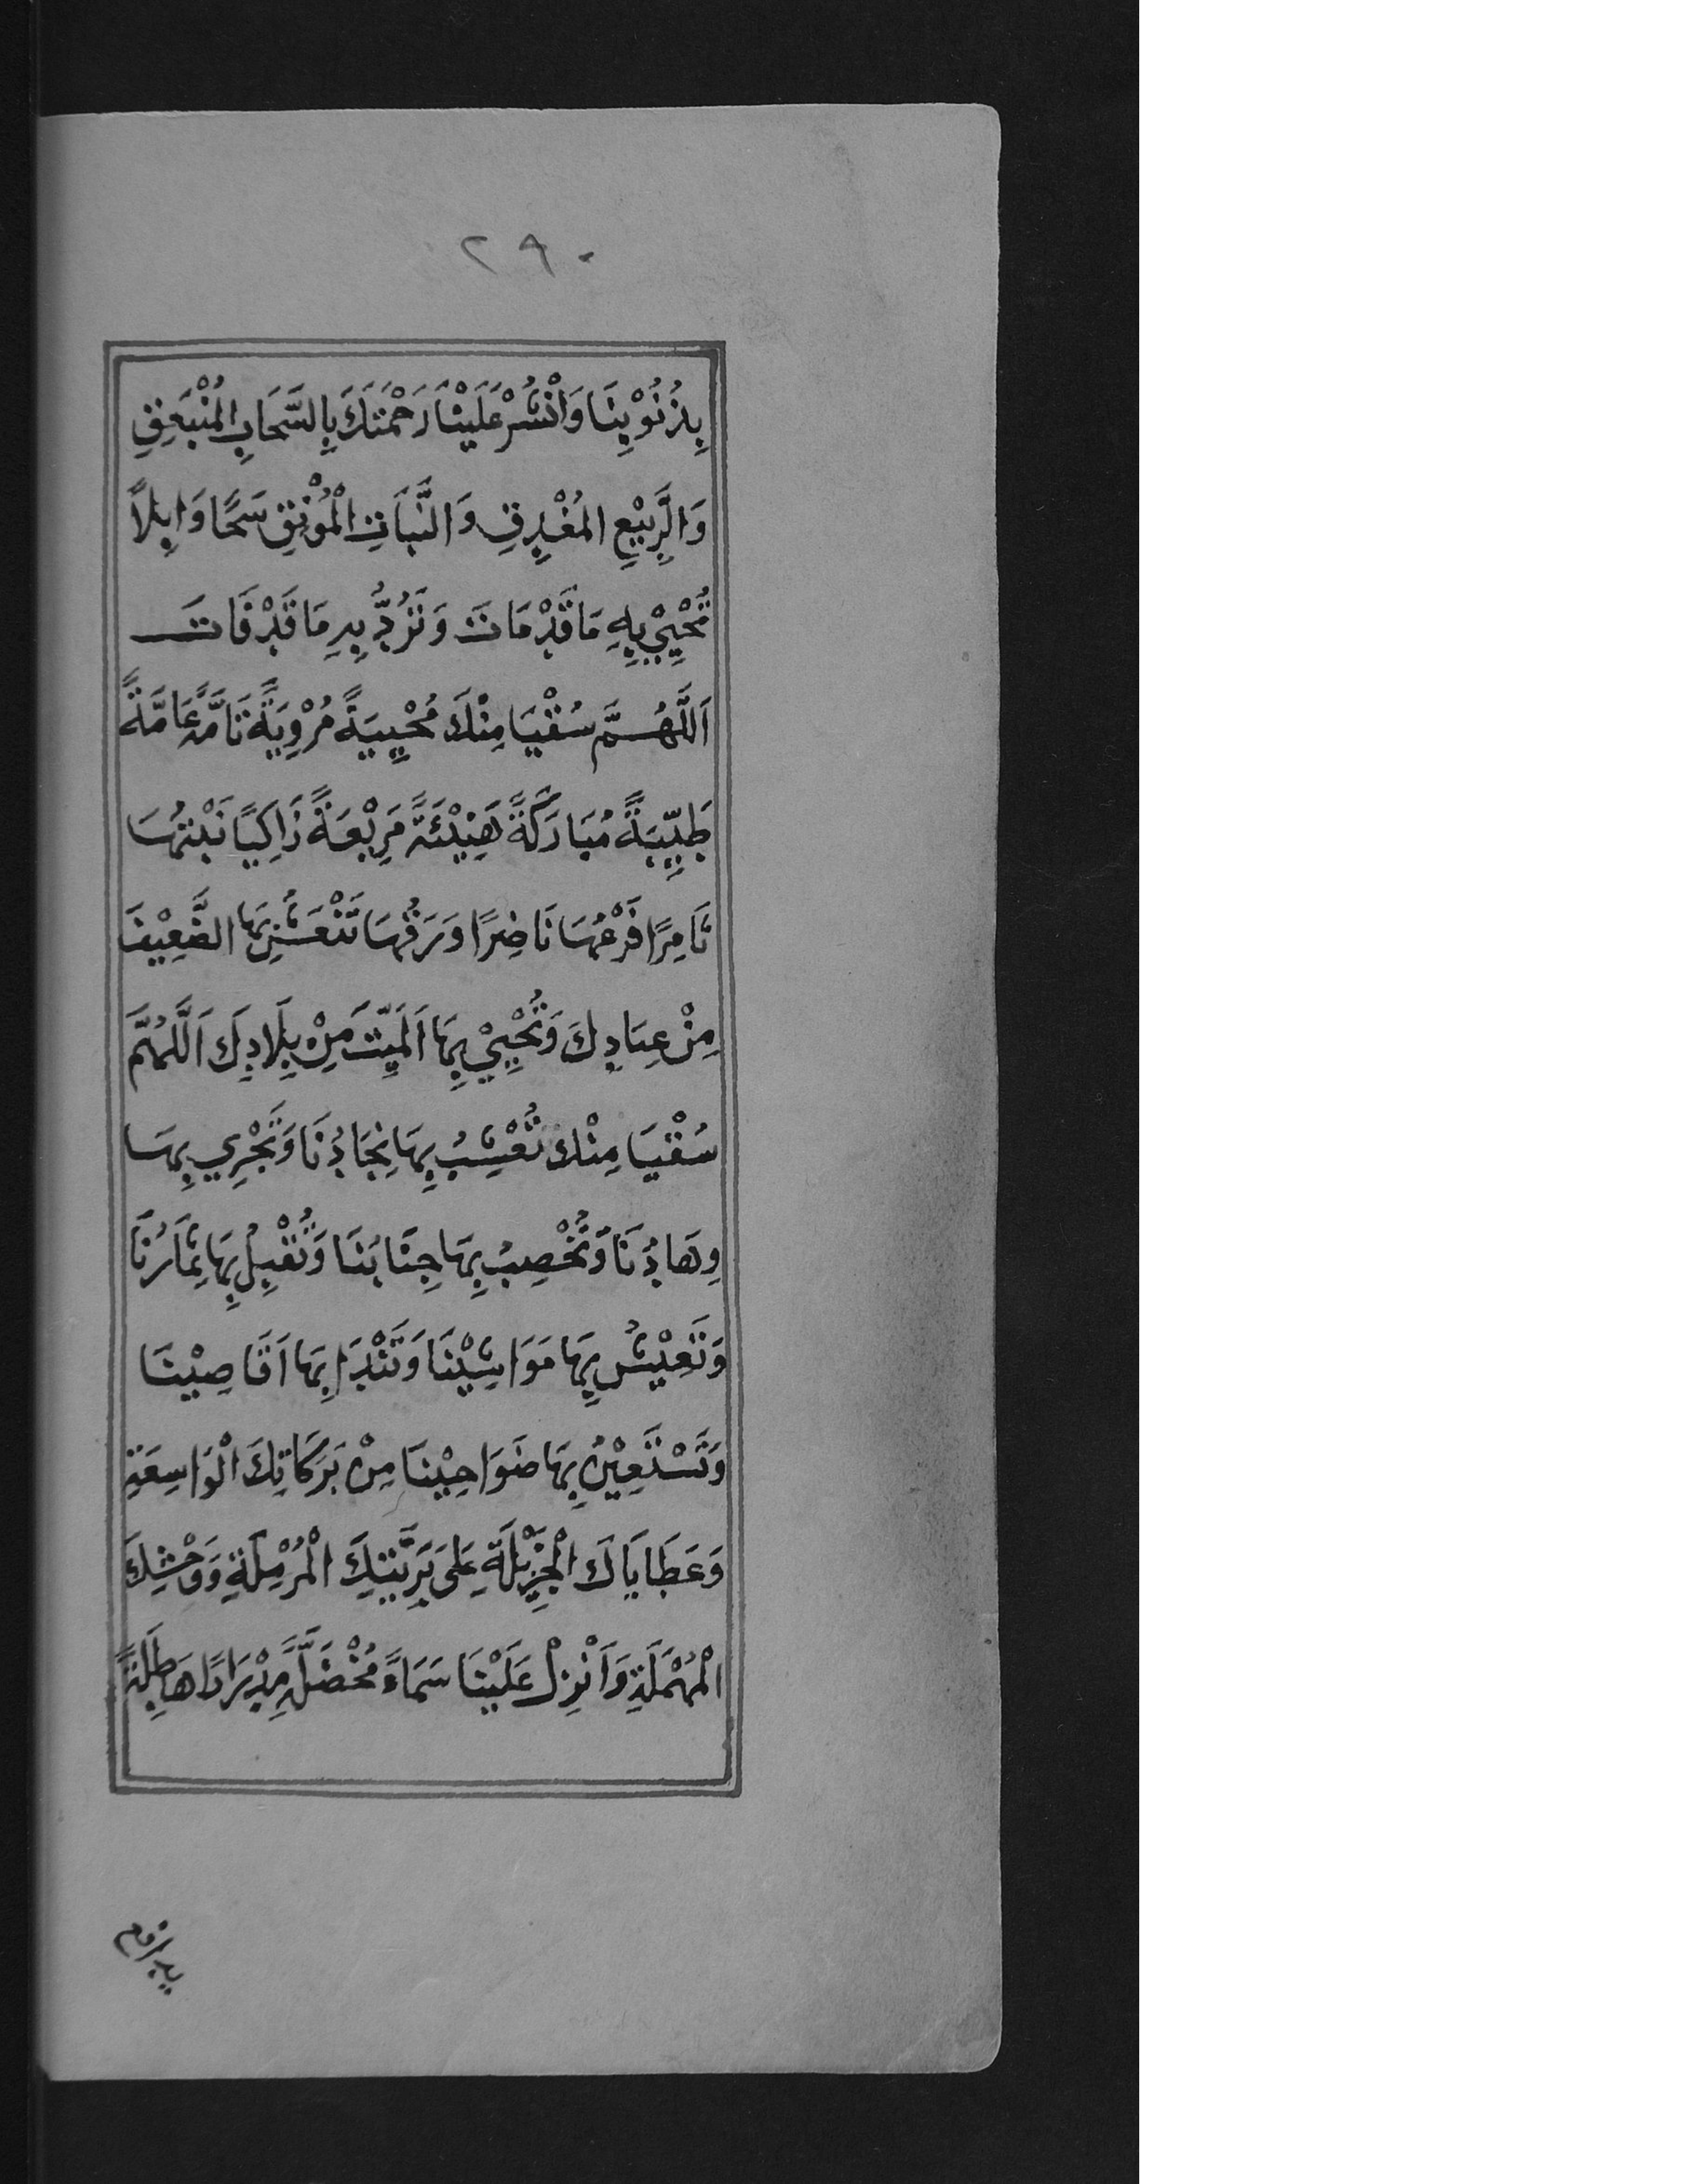 ٢٩٠
بِذُنُوْبِنَا وَانْشُرْ عَلَيْنَا رَحْمَتَكَ بِالسَّحَابِ الْمُنْبَعِقِ
وَالرَّبِيْعِ الْمُغْدِقِ وَالنَّبَاتِ الْمُوْنِقِ سَحًّا وَابِلًا
تُحْيِيْ بِهِ مَا قَدْ مَاتَ وَتَرُدُّ بِهِ مَا قَدْ فَاتَ
اَللَّهُمَّ سُقْيَا مِنْكَ مُحْيِيَةً مُرْوِيَةً تَامَّةً عَامَّةً
طَيِّبَةً مُبَارَكَةً هَنِيْئَةً مَرِيْعَةً زَاكِيًا نَبْتُهَا
ثَامِرًا فَرْعُهَا نَاضِرًا وَرَقُهَا تَنْعَشُ بِهَا الضَّعِيْفَ
مِنْ عِبَادِكَ وَتُحْيِيْ بِهَا الْمَيِّتَ مِنْ بِلَادِكَ اَللَّهُمَّ
سُقْيَا مِنْكَ تُعْشِبُ بِهَا نِجَادُنَا وَتَجْرِي بِهَا
وِهَادُنَا وَتُخْصِبُ بِهَا جِنَابُنَا وَتُقْبِلُ بِهَا ثِمَارُنَا
وَتَعِيْشُ بِهَا مَوَاشِيْنَا وَتَنْدَا بِهَا اَقَاصِيْنَا
وَتَسْتَعِيْنُ بِهَا ضَوَاحِيْنَا مِنْ بَرَكَاتِكَ الْوَاسِعَةِ
وَعَطَايَاكَ الْجَزِيْلَةِ عَلَى بَرِيَّتِكَ الْمُرْمِلَةِ وَوَحْشِكَ
الْمُهْمَلَةِ وَاَنْزِلْ عَلَيْنَا سَمَاءً مُخْضَلَّةً مِدْرَارًا هَاطِلَةً